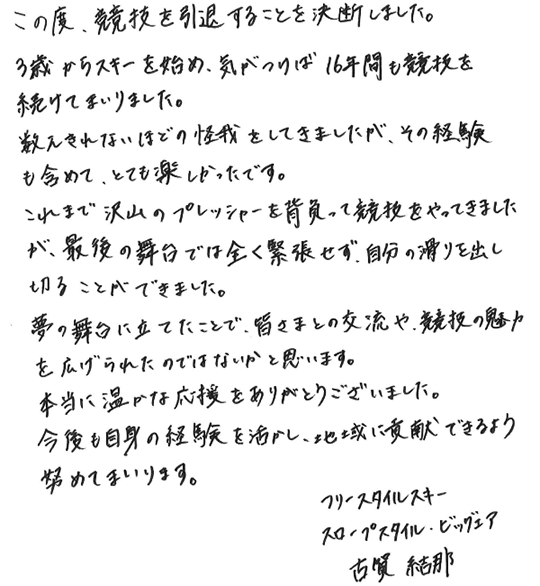 この度、競技を引退することを決断しました。
3歳からスキーを始め、気がつけば16年間も競技を
続けてまいりました。
数えきれないほどの怪我をしてきましたが、その経験
も含めて、とても楽しかったです。
これまで沢山のプレッシャーを背負って競技をやってきました
が、最後の舞台では全く緊張せず、自分の滑りを出し
切ることができました。
夢の舞台に立てたことで、皆さまとの交流や、競技の魅力
を広げられたのではないかと思います。
本当に温かな応援をありがとうございました。
今後も自身の経験を活かし、地域に貢献できるよう
努めてまいります。
フリースタイルスキー
スロープスタイル・ビッグエア
古賀 結那